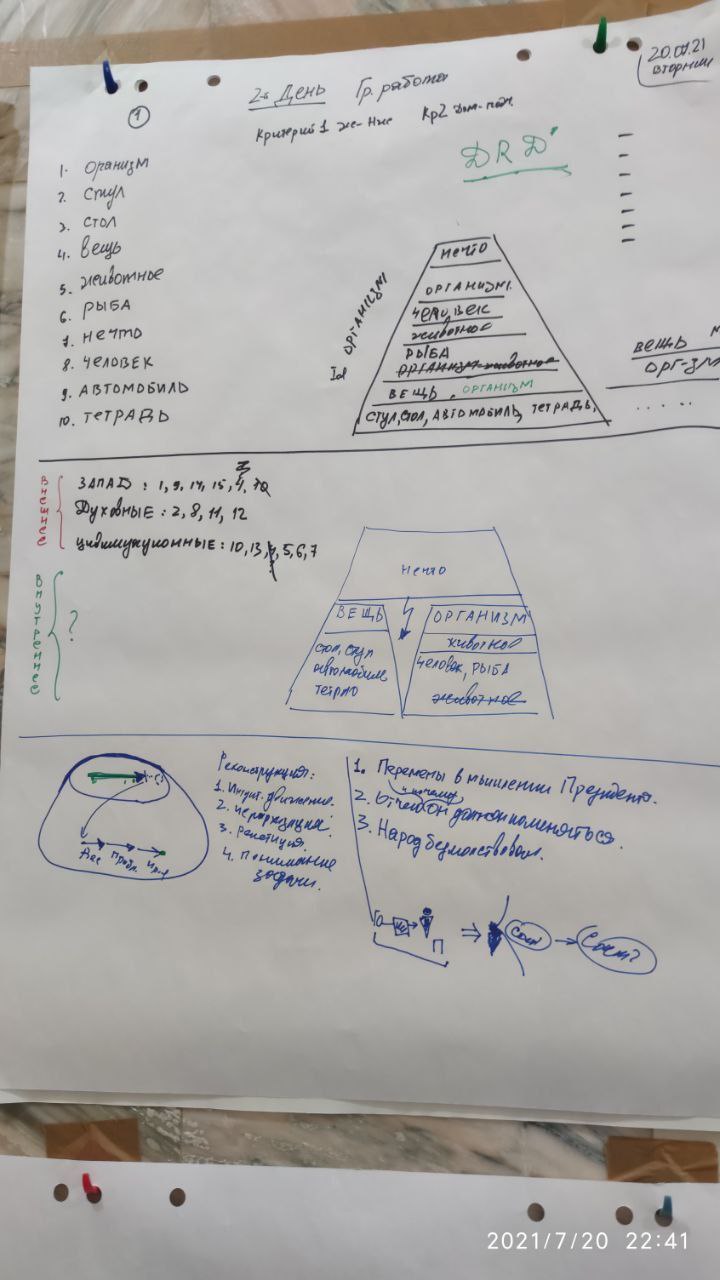 2й День Гр. работа
20.07.21
вторник
1
Критерий 1 же-нже Кр2
DRD'
1. ОРАНИЗМ
2. СТУЛ
3. СТОЛ
4. ВЕЩЬ
5. ЖИВОТНОЕ
6. РЫБА
7. НЕЧТО
8. ЧЕЛОВЕК
9. АВТОМОБИЛЬ
10. ТЕТРАДЬ
НЕЧТО
ОРГАНИЗМ
ОРГАНИЗМ
ЧЕЛОВЕК
ЖИВОТНОЕ
РЫБА
ОРГАНИЗМ ЖИВОТНОЕ
ВЕЩЬ, ОРГАНИЗМ
СТУЛ, СТОЛ, АВТОМОБИЛЬ, ТЕТРАДЬ,
ВЕЩЬ
ОРГ-ЗМ
.....
ВНЕШНЕЕ
ЗАПАД : 1, 9, 14, 15,
ДУХОВНЫЕ : 2, 8, 11, 12
: 10, 13, 4, 5, 6, 7
ВНУТРЕННЕЕ
?
НЕЧТО
ВЕЩЬ
стол, стул
автомобиль
ОРГАНИЗМ
ЖИВОТНОЕ
человек, РЫБА
животное
Реконструкция:
1. движение.
2. иерархизация.
3.
4. Понимание
задачи.
1. Перемены в мышлении Президента.
и почему
2. он должен поменяться.
3. Народ безмолствовал.
П